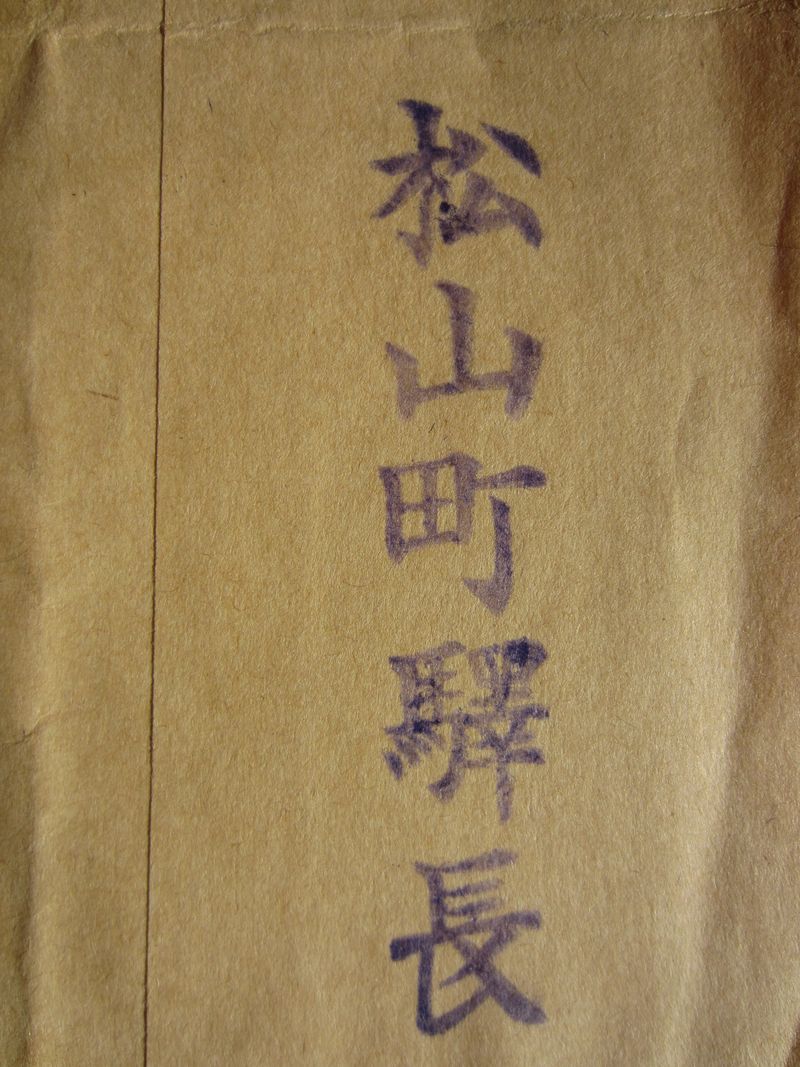 松山町驛長